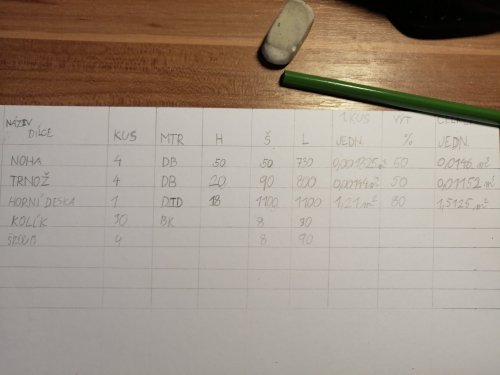 NÁZEV DÍLCE KUS MTR H Š L 1 KUS JEDN. VÝT % JEDN.
NOHA 4 DB 50 50 730 0,001825 m³ 50 0,0146 m³
TRNOŽ 4 DB 20 90 800 0,00144 m³ 50 0,01152 m³
HORNÍ DESKA 1 DTD 18 1100 1100 1,21 m² 80 1,5125 m²
KOLÍK BK 8
4 8 90